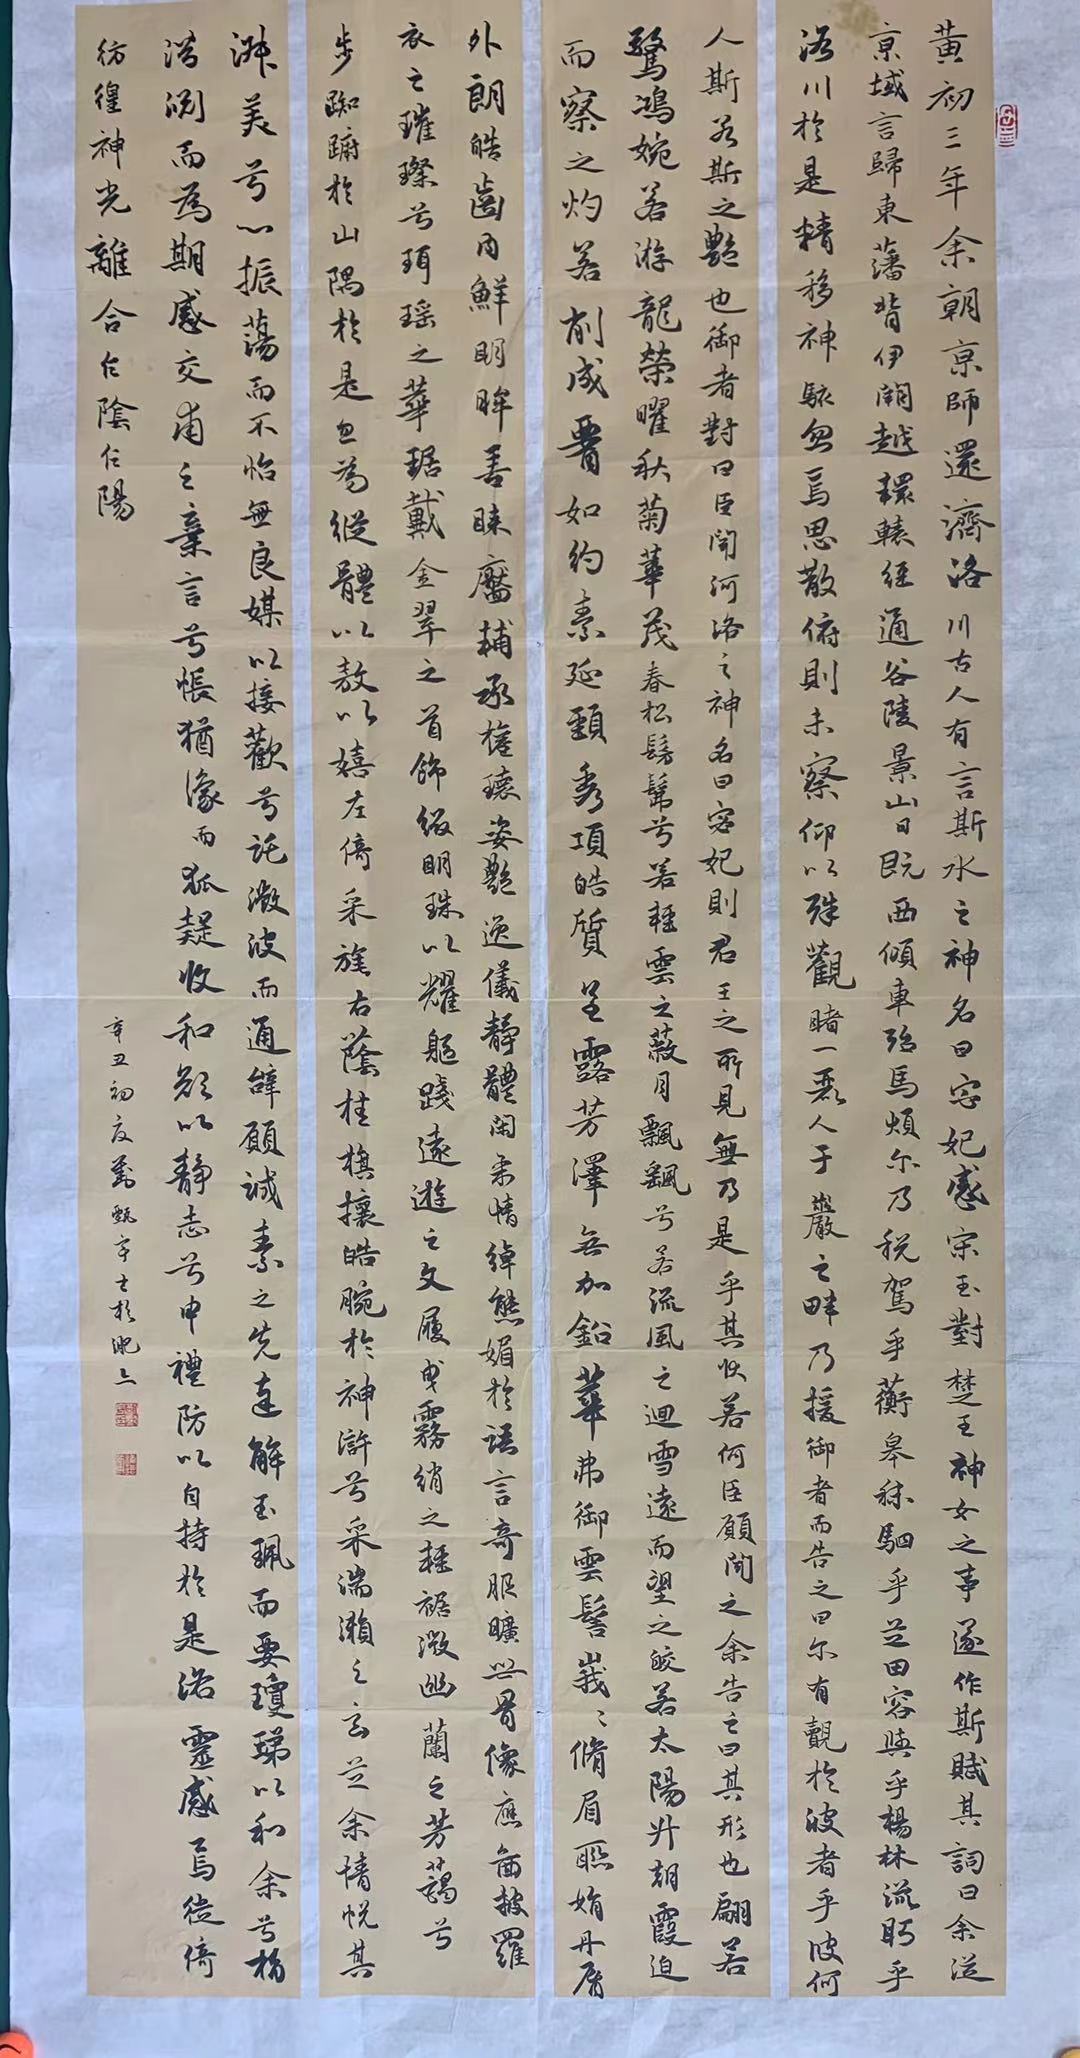 黄初三年余朝京師還濟洛川古人有言斯水之神名曰宓妃感宋玉對楚王神女之事遂作斯賦其詞曰余從
京域言歸東藩背伊闕越轘轅經通谷陵景山日既西傾車殆馬煩尔乃税駕乎蘅皋秣駟乎芝田容與乎楊林流眄乎
洛川於是精移神駭忽焉思散俯則未察仰以殊觀睹一麗人于巖之畔乃援御者而告之曰尔有覿於彼者乎彼何
人斯若斯之艷也御者對曰臣聞河洛之神名曰宓妃則君王之所見無乃是乎其狀若何臣願聞之余告之曰其形也翩若
驚鴻婉若游龍榮曜秋菊華茂春松髣髴兮若輕雲之蔽月飄飖兮若流風之迴雪遠而望之皎若太陽升朝霞迫
而察之灼若削成腰如約素延頸秀項皓質呈露芳澤無加鉛華弗御雲髻峩〻脩眉聯娟丹脣
外朗皓齒内鮮明眸善睞靨輔承權瓌姿艷逸儀靜體閑柔情綽態媚於語言奇服曠世骨像應圖披羅
衣之璀璨兮珥瑶之華琚戴金翠之首飾綴明珠以耀軀踐遠遊之文履曳霧綃之輕裾微幽蘭之芳藹兮
步踟躕於山隅於是忽焉縱體以敖以嬉左倚采旄右蔭桂旗攘皓腕於神滸兮采湍瀨之玄芝余情悦其
淑美兮心振蕩而不怡無良媒以接歡兮託微波而通辭願誠素之先達解玉珮而要瓊珶以和余兮指
潛渊而為期感交甫之棄言兮悵猶豫而狐疑收和顏以靜志兮申禮防以自持於是洛靈感焉徙倚
彷徨神光離合乍陰乍陽
辛丑初夏